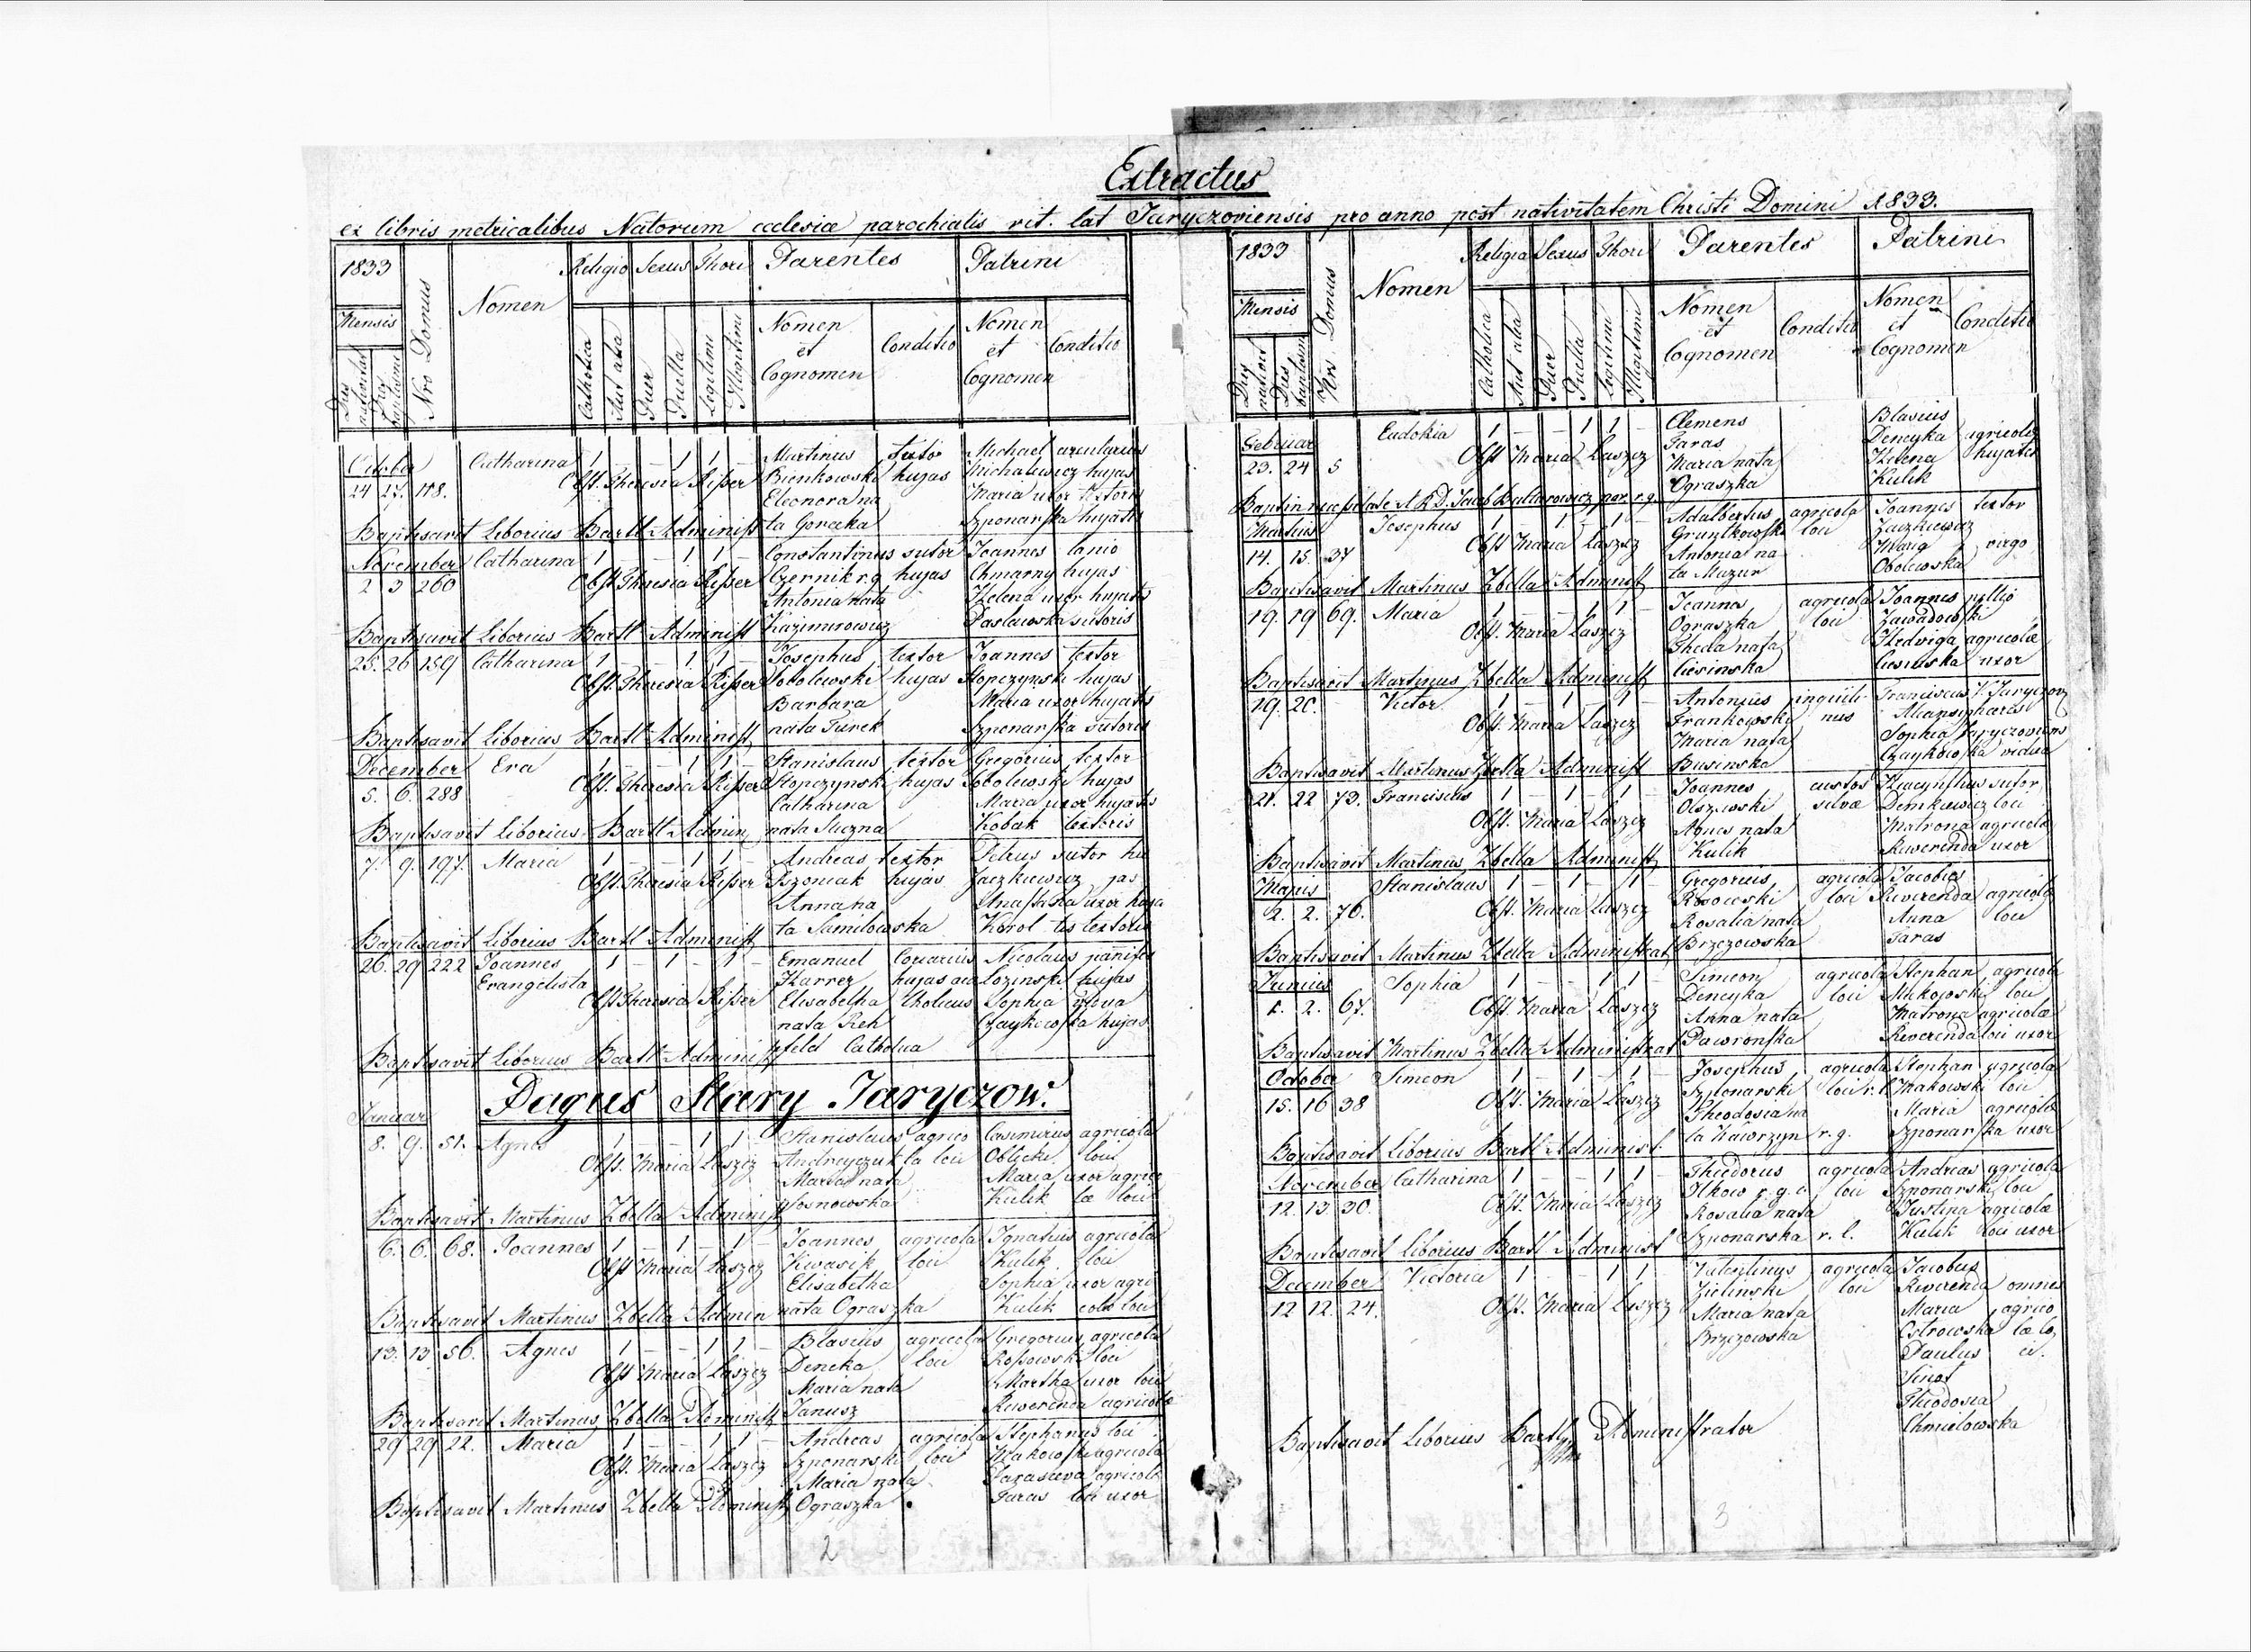 Extractus
ex libris metricalibus Natorum ecclesiæ parochialis rit. lat Jaryczoviensis pro anno post nativitatem Christi Domini 1833.
1833 Nro Domus Nomen Religio Sexus Thori Parentes Patrini
Mensis
Dies nativitat Dies baptismi Catholica Aut alia Puer Puella Legitimi Illegitimi Nomen et Cognomen Conditio Nomen et Cognomen Conditio
October Catharina 1 – – 1 1 – Martinus sutor Michael arcularius
24 27. 118. Obst. Theresia Risser Bienkowski hujas Michalewicz hujas
Eleonora na Maria uxor textoris
Baptisavit Liborius Bartl Administ ta Goracka Szponarska hujatis
November Catharina 1 – – 1 1 – Constantinus sutor Joannes lanio
2 3 260 Obst Theresia Risser Czernik r.g. hujas Chmarny hujas
Antonia nata Helena uxor hujatis
Baptisavit Liborius Bartl Administ Kazimirowicz Paslawska sutoris
25. 26 159 Catharina 1 – – 1 1 – Josephus textor Joannes textor
Obst. Theresia Risser Sobolewski hujas Stopczynski hujas
Barbara Maria uxor hujatis
Baptisavit Liborius Bartl Administ nata Turek Szponarska sutoris
December Eva 1 – – 1 1 – Stanislaus textor Gregorius textor
5. 6. 288 Obst. Theresia Risser Stopczynski hujas Sobolewski hujas
Catharina Maria uxor hujatis
Baptisavit Liborius Bartl Admin nata Muzna Kobak textoris
7. 9. 197. Maria 1 – – 1 1 – Andreas textor Petrus sutor hu
Obst. Theresia Risser Pszoniak hujas Jaczkiewicz jas
Anna na Anastasia uxor huja
Baptisavit Liborius Bartl Administ ta Samilowska Korol tis textoris
26. 29 222 Joannes 1 – 1 – 1 – Emanuel Nicolaus panifex
Evangelista Harrer hujas aca Lozinski hujas
Obst Theresia Risser Elisabetha tholicus Sophia vidua
nata Reh Czaykowska hujas
Baptisavit Liborius Bartl Administ feld Catholica
Pagus Stary Jaryczow.
Januar
8. 9. 51. Agnes 1 – – 1 1 Stanislaus agrico Casimirus agricola
Obst. Maria Laszcz Andreyczuk la loci Oblicki loci
Maria nata Maria uxor agrico
Baptisavit Martinus Zbella Administ Sosnowska Kulik læ loci
6. 6. 68. Joannes 1 – 1 – 1 Joannes agricola Ignatius agricola
Obst Maria Laszcz Kwasik loci Kulik loci
Elisabetha Sophia uxor agri
Baptisavit Martinus Zbella Admin nata Ograszka Kulik colæ loci
13. 13 56. Agnes 1 – – 1 1 – Blasius agricola Gregorius agricola
Obst Maria Laszcz Deneka loci Rossowski loci
Maria nata Martha uxor loci
Baptisavit Martinus Zbella Administ Janusz Rewerenda agricolæ
29 29 22. Maria 1 – – 1 1 – Andreas agricola Stephanus loci
Obst. Maria Laszcz Szponarski loci Makowski agricola
Maria nata Parasceva agricolæ
Baptisavit Martinus Zbella Administ Ograszka Taras loci uxor
2
1833 Nro. Domus Nomen Religio Sexus Thori Parentes Patrini
Mensis
Dies nativit Dies baptismi Catholica Aut alia Puer Puella Legitimi Illegitimi Nomen et Cognomen Conditio Nomen et Cognomen Conditio
Februar Eudokia 1 – – 1 1 – Clemens Blasius
23. 24 5 Obst Maria Laszcz Taras Dencyka agricola
Maria nata Helena hujatis
Ograszka Kulik
Baptin necessitate A.R.D. Jacob par. r.g.
Martius Josephus 1 – 1 – 1 – Adalbertus agricola Joannes textor
14. 15. 37 Obst Maria Laszcz Gruntkowski loci Jaczkiewicz
Antonia na Maria virgo
Baptisavit Martinus Zbella Administ ta Mazur Obolewska
19. 19 69. Maria 1 – – 1 1 – Joannes agricola Joannes pellio
Obst. Maria Laszcz Ograszka loci Zawadowski
Theda nata Hedviga agricolæ
Baptisavit Martinus Zbella Administ Ciesinska Ciesinska uxor
19. 20. Victor 1 – 1 – 1 – Antonius inquili Franciscus V. Jaryczov
Obst. Maria Laszcz Frankowski nus Mansipharis
Maria nata Sophia Jaryczoviens
Baptisavit Martinus Zbella Administ Businska Czaykowska vidua
21. 22 73. Franciscus 1 – 1 – 1 – Joannes custos Hiacynthus sutor
Obst. Maria Laszcz Olszewski silvæ Demkiewicz loci
Agnes nata Matrona agricolæ
Baptisavit Martinus Zbella Administ Kulik Rewerenda uxor
Majus Stanislaus 1 – 1 – 1 – Gregorius agricola Jacobus
2. 2. 70. Obst. Maria Laszcz Rosowski loci Rewerenda agricola
Rosalia nata Anna loci
Baptisavit Martinus Zbella Administrat Brzezowska Taras
Junius Sophia 1 – – 1 1 – Simeon agricola Stephan agricola
1. 2. 67. Obst. Maria Laszcz Dencyka loci Makowski loci
Anna nata Matrona agricolæ
Baptisavit Martinus Zbella Administrat Pawronska Rewerenda loci uxor
October Simeon 1 – 1 – 1 – Josephus agricola Stephan agricola
15. 16 38 Obst. Maria Laszcz Szponarski loci r. l. Makowski loci
Theodosia na Maria agricolæ
Baptisavit Liborius Bartl Administ. ta Hawrzyn r. g. Szponarska uxor
November Catharina 1 – – 1 1 – Theodorus agricola Andreas agricola
12. 13 30. Obst. Maria Laszcz Ilkow r. g. loci Szponarski loci
Rosalia nata Justina agricolæ
Baptisavit Liborius Bartl Administ Szponarska r. l. Kulik loci uxor
December Victoria 1 – – 1 1 Valentinus agricola Jacobus
12 12. 24. Obst. Maria Laszcz Zielinski loci Rewerenda omnes
Maria nata Maria agrico
Brzezowska Ostrowska læ lo
Paulus ci.
Sinot
Theodosia
Chmielowska
Baptisavit Liborius Bartl Administrator
3